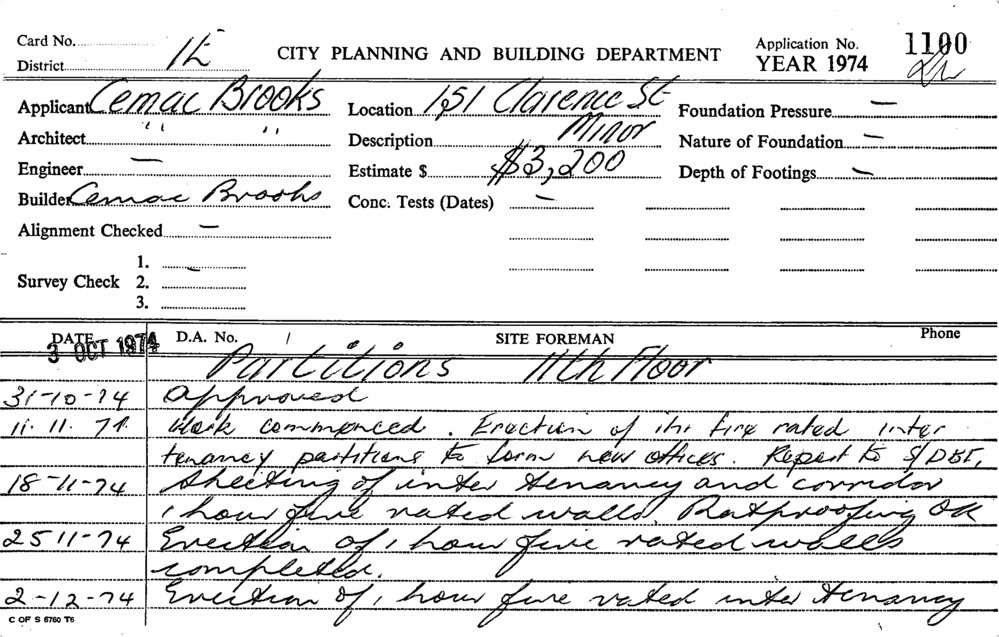 Card No. 
District 1E
CITY PLANNING AND BUILDING DEPARTMENT
Application No. 1100
YEAR 1974
Applicant Cemac Brooks
Architect " "
Engineer —
Builder Cemac Brooks
Alignment Checked —
Survey Check 1.
2. —
3.
Location 151 Clarence St
Description Minor
Estimate $ $3,200
Conc. Tests (Dates) —
Foundation Pressure —
Nature of Foundation —
Depth of Footings —
DATE D.A. No. / SITE FOREMAN Phone
3 OCT 1974 Partitions 11th Floor
31-10-74 Approved
11.11.74 Work commenced. Erection of 1hr fire rated inter
tenancy partitions to form new offices. Report to S/DBI.
18-11-74 Sheeting of inter tenancy and corridor
1 hour fire rated walls. Ratproofing OK
25 11-74 Erection of 1 hour fire rated walls
completed.
2-12-74 Erection of 1 hour fire rated inter tenancy
C OF S 6760 T6